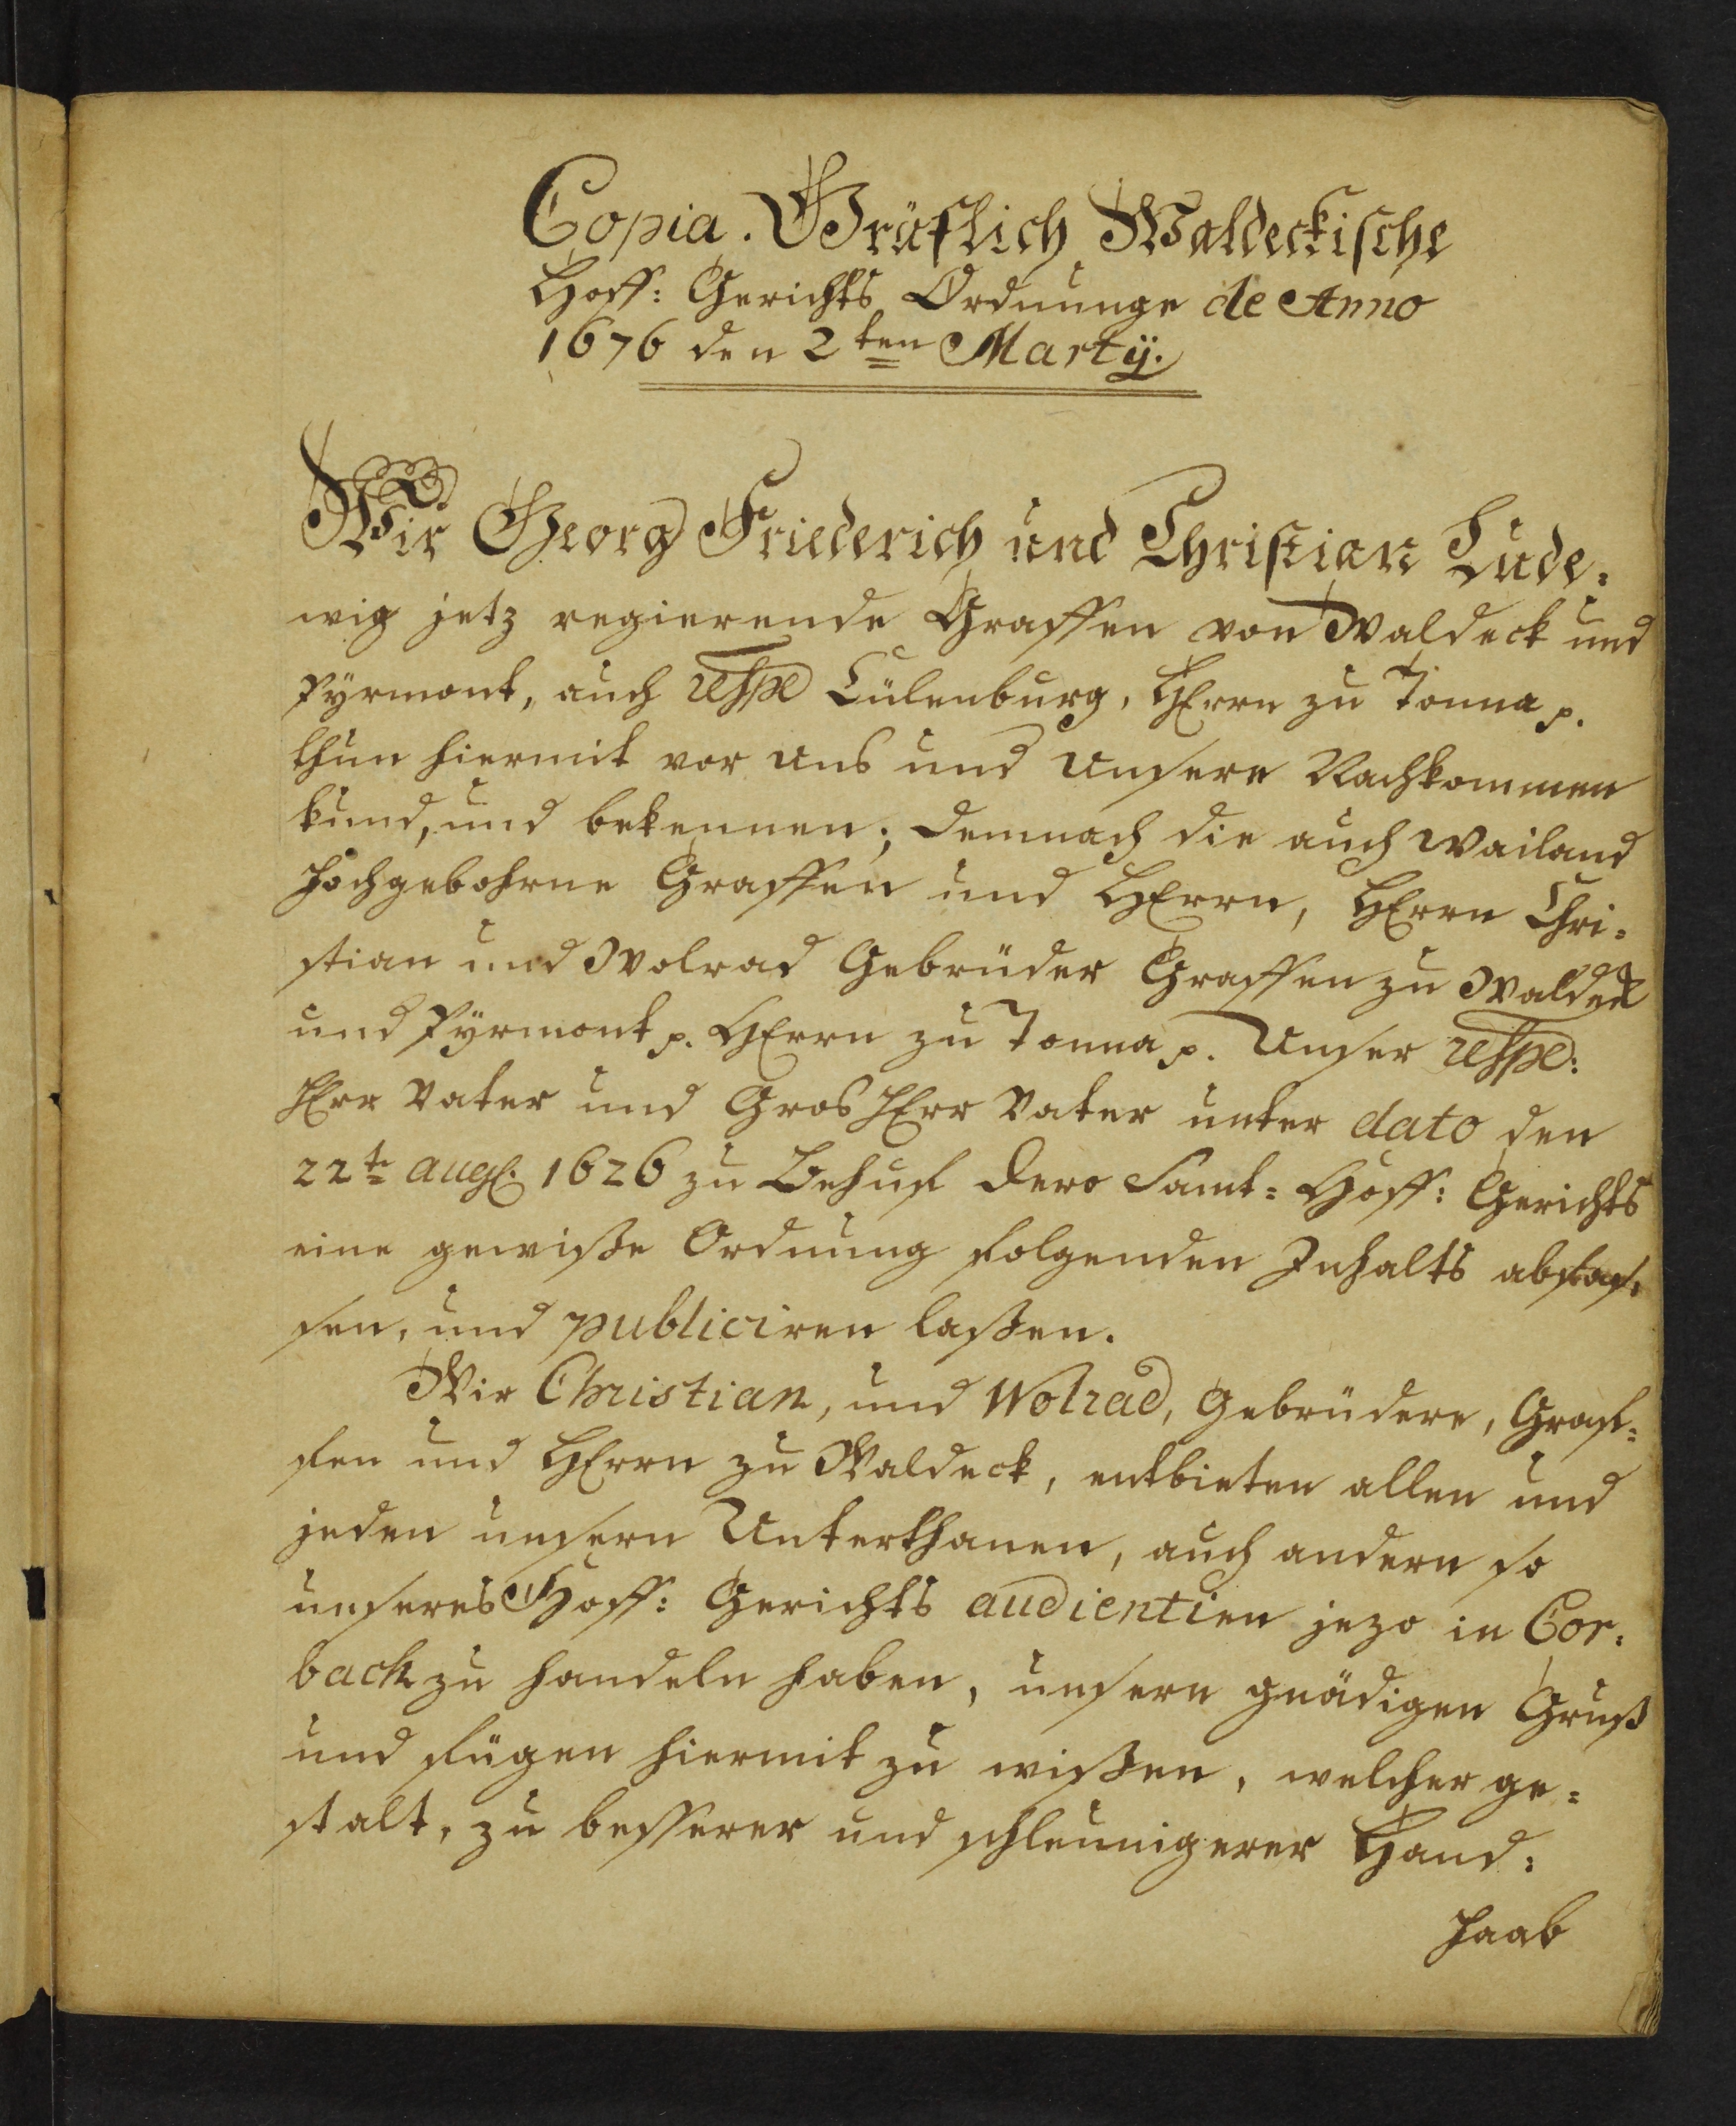 Copia. Gräflich Waldeckische
Hoff: Gerichts Ordnunge de Anno
1676 den 2ten Martÿ.
Wir Georg Friederich und Christian Lude:
wig jetz regierende Graffen von Waldeck und
Pÿrmont, auch respe Cülenburg, HErrn zu Tonna p.
thun hiermit vor uns und unsere Nachkommen
kund, und bekennen; demnach die auch wailand
hochgebohrne Graffen und HErrn, HErrn Chri:
stian und Wolrad Gebrüder Graffen zu Waldeck
und Pÿrmont p. HErrn zu Tonna p. Unser respe:
HErr Vater und Gros HErr Vater unter dato den
22te aug. 1626 zu Behuf dero Samt= Hoff: Gerichts
eine gewiße Ordnung folgenden Inhalts abfas:
sen, und publiciren laßen.
Wir Christian, und Wolrad, Gebrüdere, Graf=
fen und HErrn zu Waldeck, entbieten allen und
jeden unsern Unterthanen, auch andern so
unseres Hoff: Gerichts audientien jezo in Cor:
back zu handeln haben, unsern gnädigen Gruß
und fügen hiermit zu wißen, welcher ge=
stalt, zu besserer und schleunigerer Hand:
haab